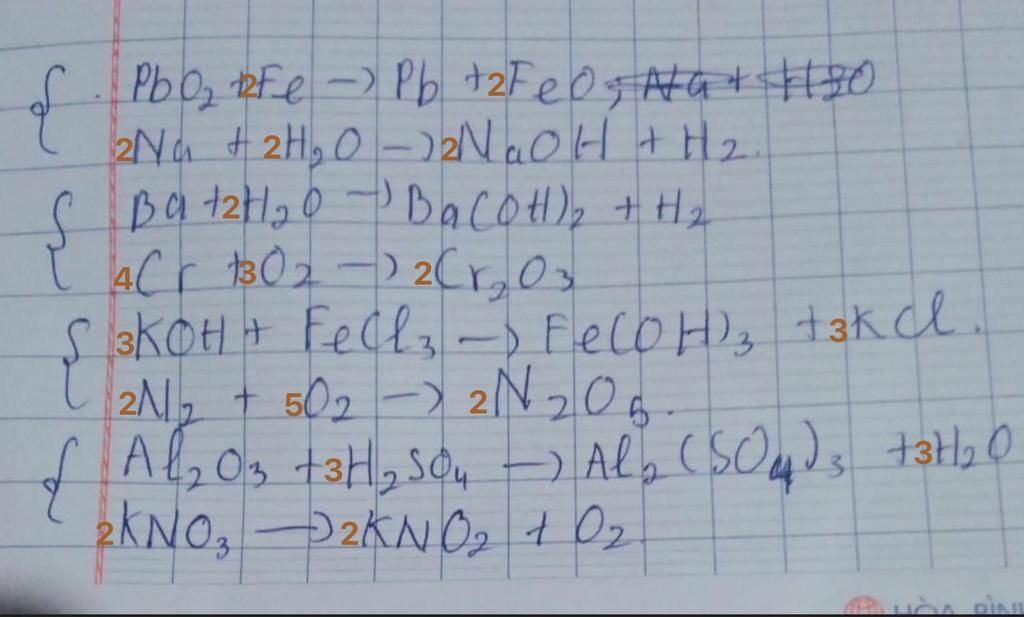 PbO2 + 2Fe -> Pb + 2FeO; Na + H2O
2Na + 2H2O -> 2NaOH + H2.
Ba + 2H2O -> Ba(OH)2 + H2
4Cr + 3O2 -> 2Cr2O3
3KOH + FeCl3 -> Fe(OH)3 + 3KCl.
2N2 + 5O2 -> 2N2O5.
Al2O3 + 3H2SO4 -> Al2(SO4)3 + 3H2O
2KNO3 -> 2KNO2 + O2
HÒA BÌNH